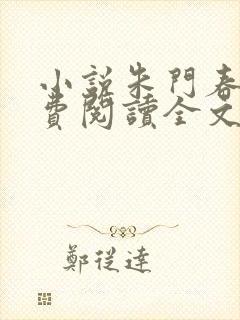 小說朱門春
費閱讀全文
鄭從達